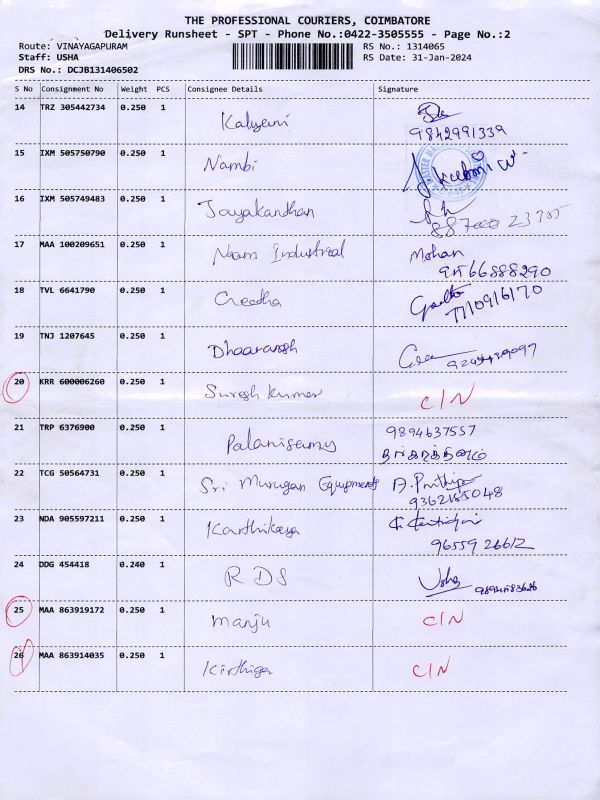 THE PROFESSIONAL COURIERS, COIMBATORE
Delivery Runsheet - SPT - Phone No.:0422-3505555 - Page No.:2
Route: VINAYAGAPURAM RS No.: 1314065
Staff: USHA RS Date: 31-Jan-2024
DRS No.: DCJB131406502
S No Consignment No Weight PCS Consignee Details Signature
14 TRZ 305442734 0.250 1 Kalyani
9842991339
15 IXM 505750790 0.250 1 Nambi
16 IXM 505749483 0.250 1 Jayakandhan
17 MAA 100209651 0.250 1 Naam Industrial Mohan
9566888290
18 TVL 6641790 0.250 1 Geedha
7710916170
19 TNJ 1207645 0.250 1
20 KRR 600006260 0.250 1 Suresh kumar C/N
21 TRP 6376900 0.250 1 Palanisamy 9894637557
22 TCG 50564731 0.250 1 Sri Murugan Equipments
23 NDA 905597211 0.250 1 Karthikeya
96559 26612
24 DDG 454418 0.240 1 RDS Usha
25 MAA 863919172 0.250 1 manju C/N
26 MAA 863914035 0.250 1 Kirthiga C/N